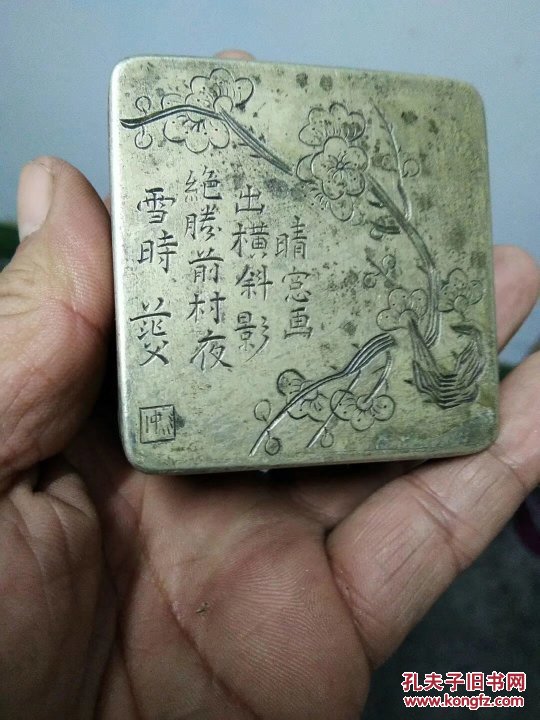 晴窓画
出横斜影
絶勝前村夜
雪時 茫父
孔夫子旧书网
www.kongfz.com